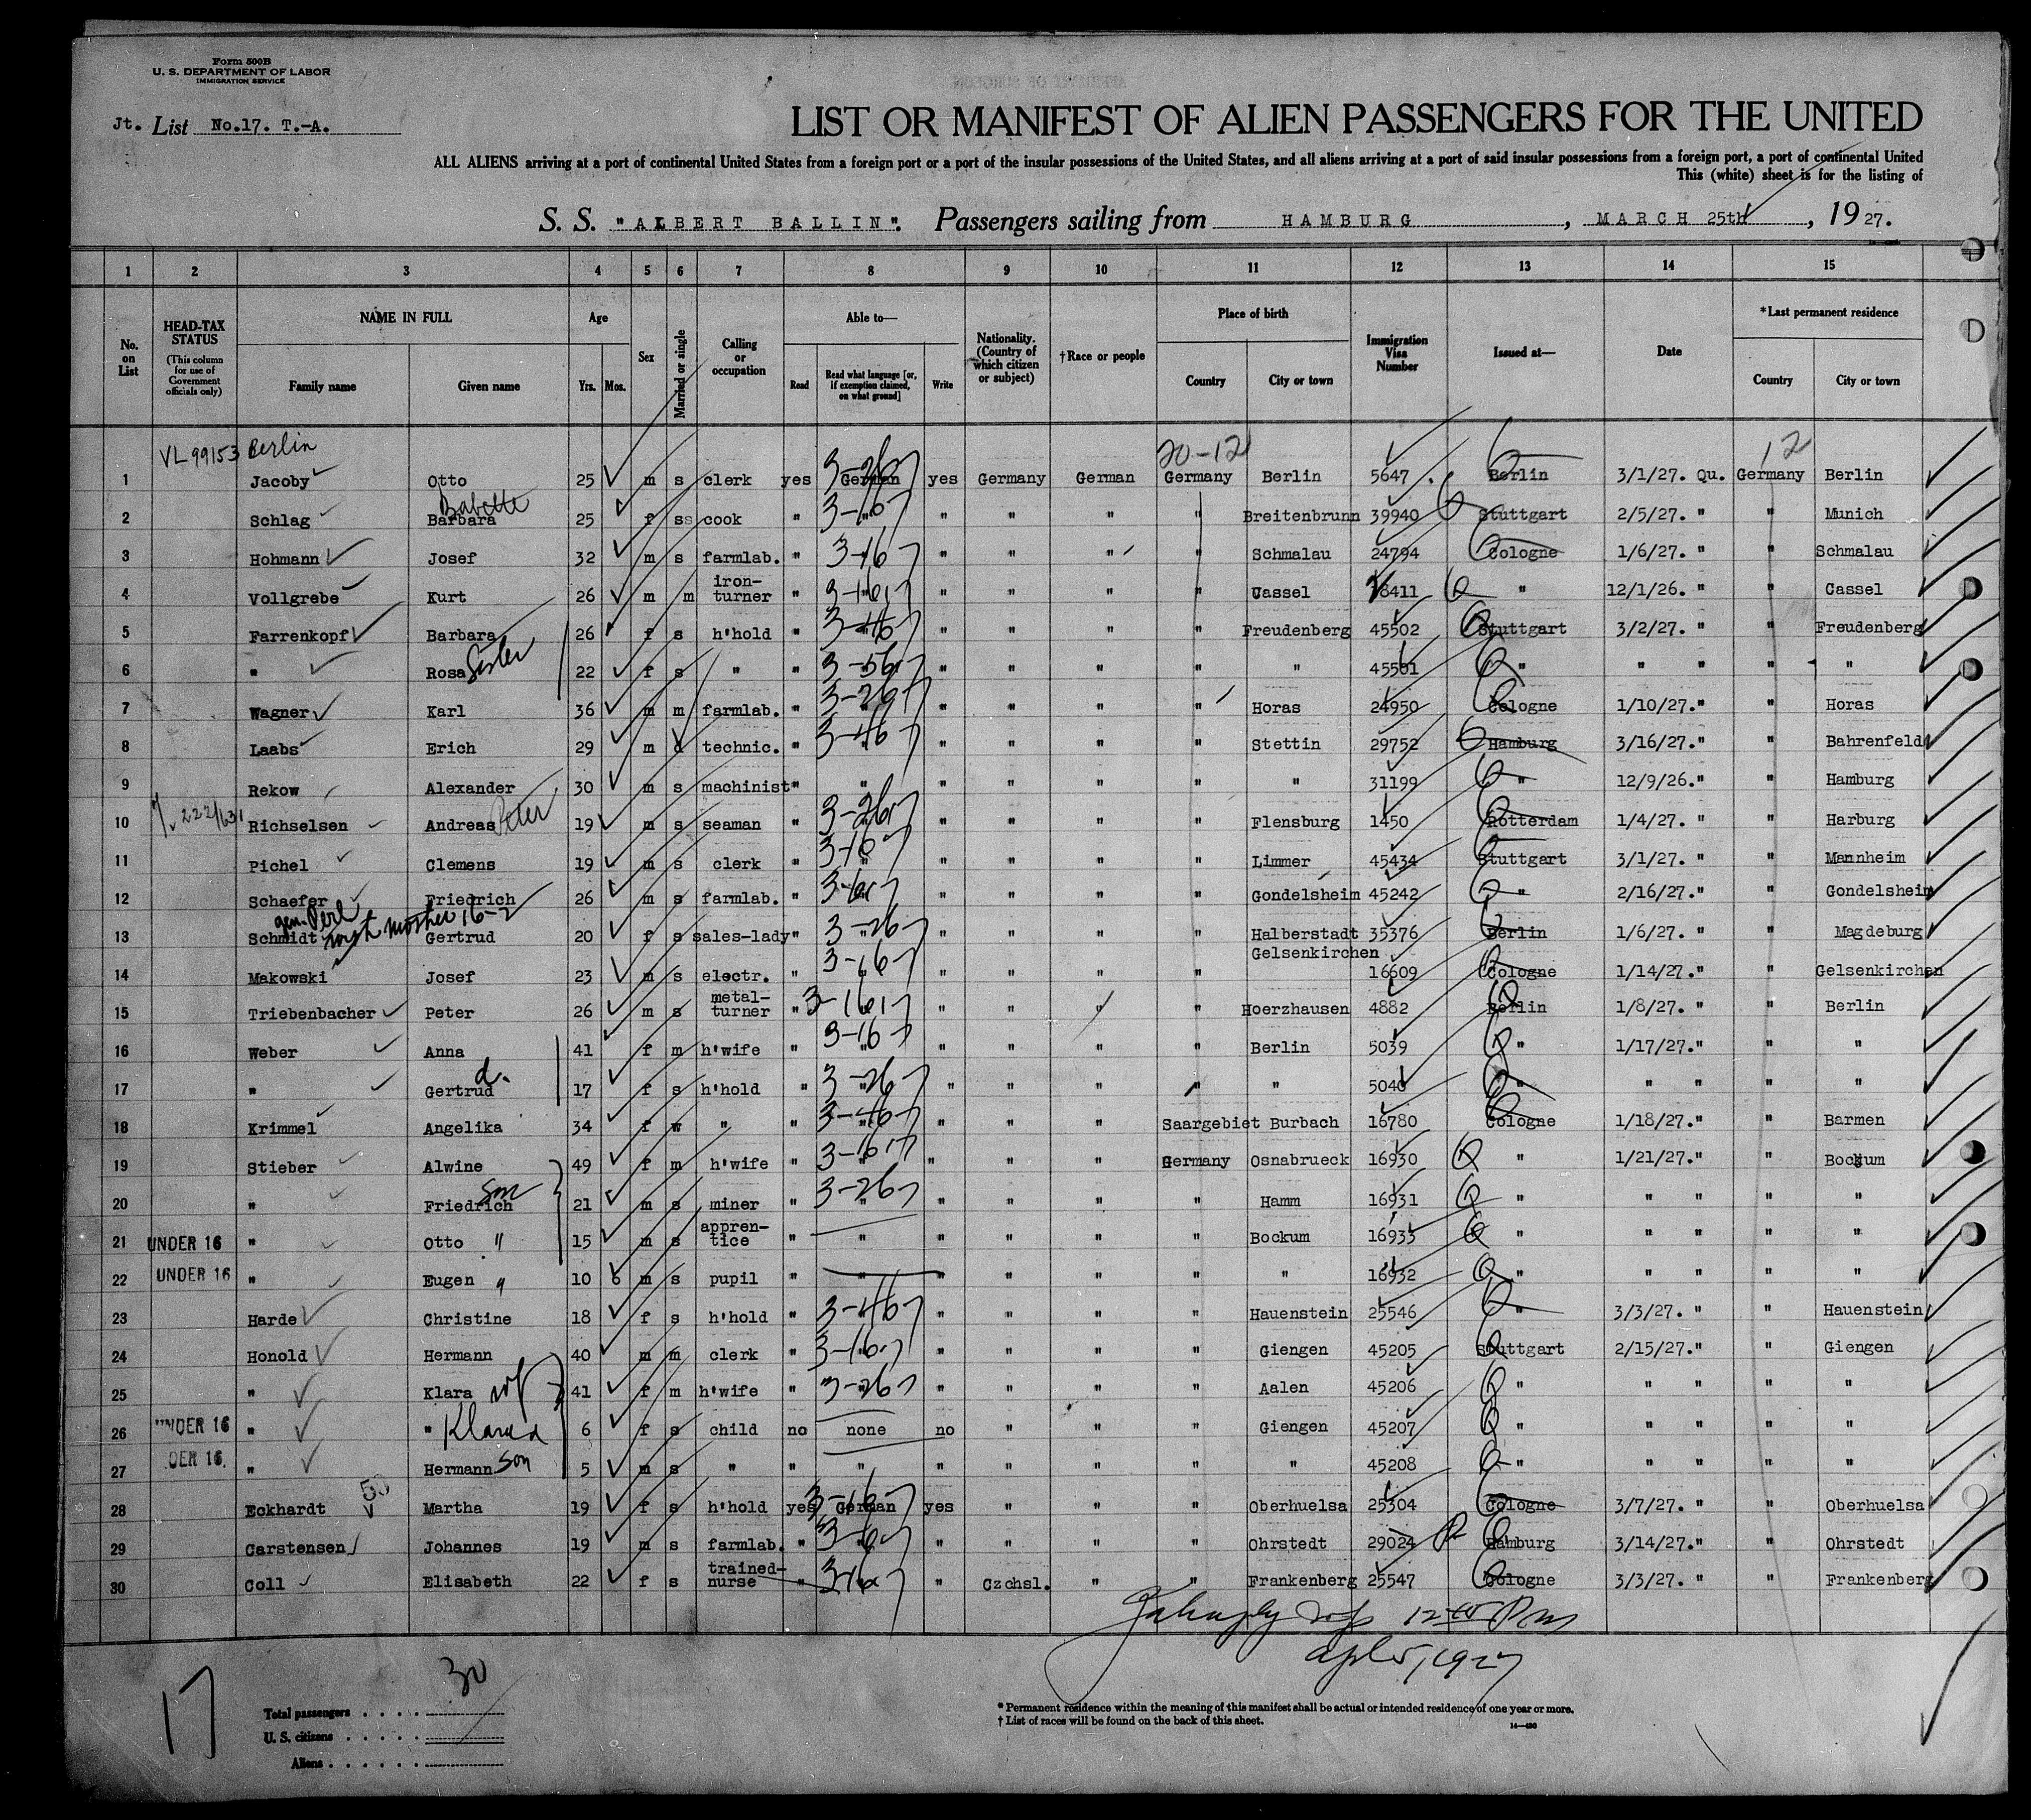 Form 500B
U. S. DEPARTMENT OF LABOR
IMMIGRATION SERVICE
Jt. List No.17. T.-A.
LIST OR MANIFEST OF ALIEN PASSENGERS FOR THE UNITED
ALL ALIENS arriving at a port of continental United States from a foreign port or a port of the insular possessions of the United States, and all aliens arriving at a port of said insular possessions from a foreign port, a port of continental United
This (white) sheet is for the listing of
S. S. "ALBERT BALLIN". Passengers sailing from HAMBURG, MARCH 25th, 1927.
1 2 3 4 5 6 7 8 9 10 11 12 13 14 15
No. on List
HEAD-TAX STATUS (This column for use of Government officials only)
NAME IN FULL Family name Given name
Age Yrs. Mos.
Sex
Married or single
Calling or occupation
Able to— Read Read what language [or, if exemption claimed, on what ground] Write
Nationality. (Country of which citizen or subject)
†Race or people
Place of birth Country City or town
Immigration Visa Number
Issued at—
Date
*Last permanent residence Country City or town
VL 99153 Berlin 20-12 12
1 Jacoby Otto 25 m s clerk yes German 3-26-7 yes Germany German Germany Berlin 5647 Berlin 3/1/27. Qu. Germany Berlin
Babette
2 Schlag Barbara 25 f ss cook " " 3-16-7 " " " " Breitenbrunn 39940 Stuttgart 2/5/27. " " Munich
3 Hohmann Josef 32 m s farmlab. " 3-16-7 " " " " Schmalau 24794 Cologne 1/6/27. " " Schmalau
4 Vollgrebe Kurt 26 m m iron-turner " " 3-16-7 " " " " Cassel 8411 " 12/1/26. " " Cassel
5 Farrenkopf Barbara 26 f s h'hold " " 3-46-7 " " " " Freudenberg 45502 Stuttgart 3/2/27. " " Freudenberg
6 " Rosa Sister 22 f s " " " 3-56-7 " " " " " 45501 " " " " "
7 Wagner Karl 36 m m farmlab. " " 3-26-7 " " " " Horas 24950 Cologne 1/10/27. " " Horas
8 Laabs Erich 29 m d technic. " " 3-46-7 " " " " Stettin 29752 Hamburg 3/16/27. " " Bahrenfeld
9 Rekow Alexander 30 m s machinist " " " " " " " 31199 " 12/9/26. " " Hamburg
10 Richselsen Andreas Peter 19 m s seaman " " 3-26-7 " " " " Flensburg 1450 Rotterdam 1/4/27. " " Harburg
11 Pichel Clemens 19 m s clerk " " 3-16-7 " " " " Limmer 45434 Stuttgart 3/1/27. " " Mannheim
12 Schaefer Friedrich 26 m s farmlab. " " " " " " Gondelsheim 45242 " 2/16/27. " " Gondelsheim
mother 16-2
13 Schmidt Gertrud 20 f s sales-lady " 3-26-7 " " " " Halberstadt 35376 Berlin 1/6/27. " " Magdeburg
14 Makowski Josef 23 m s electr. " " 3-16-7 " " " " Gelsenkirchen 16609 Cologne 1/14/27. " " Gelsenkirchen
15 Triebenbacher Peter 26 m s metal-turner " " 3-16-7 " " " " Hoerzhausen 4882 Berlin 1/8/27. " " Berlin
16 Weber Anna 41 f m h'wife " " 3-16-7 " " " " Berlin 5039 " 1/17/27. " " "
17 " Gertrud d. 17 f s h'hold " " 3-26-7 " " " " " 5040 " " " " "
18 Krimmel Angelika 34 f w " " " 3-46-7 " " " Saargebiet Burbach 16780 Cologne 1/18/27. " " Barmen
19 Stieber Alwine 49 f m h'wife " 3-16-7 " " " Germany Osnabrueck 16930 " 1/21/27. " " Bockum
20 " Friedrich Son 21 m s miner " " 3-26-7 " " " " Hamm 16931 " " " " "
21 UNDER 16 " Otto " 15 m s appren-tice " " " " " " Bockum 16933 " " " " "
22 UNDER 16 " Eugen " 10 6 m s pupil " " " " " " " 16932 " " " " "
23 Harde Christine 18 f s h'hold " " 3-46-7 " " " " Hauenstein 25546 " 3/3/27. " " Hauenstein
24 Honold Hermann 40 m m clerk " " 3-16-7 " " " " Giengen 45205 Stuttgart 2/15/27. " " Giengen
25 " Klara wf 41 f m h'wife " " 3-26-7 " " " " Aalen 45206 " " " " "
26 UNDER 16 " " Klara d 6 f s child no none no " " " Giengen 45207 " " " " "
27 DER 16 " Hermann son 5 m s " " " " " " " " 45208 " " " " "
28 Eckhardt 50 Martha 19 f s h'hold yes German 3-16-7 yes " " " Oberhuelsa 25304 Cologne 3/7/27. " " Oberhuelsa
29 Carstensen Johannes 19 m s farmlab. " " " " " " Ohrstedt 29024 Hamburg 3/14/27. " " Ohrstedt
30 Coll Elisabeth 22 f s trained-nurse " " " Czchsl. " " Frankenberg 25547 Cologne 3/3/27. " " Frankenberg
Apl 5, 1927
17
30
Total passengers
U. S. citizens
Aliens
* Permanent residence within the meaning of this manifest shall be actual or intended residence of one year or more.
† List of races will be found on the back of this sheet.
14—430